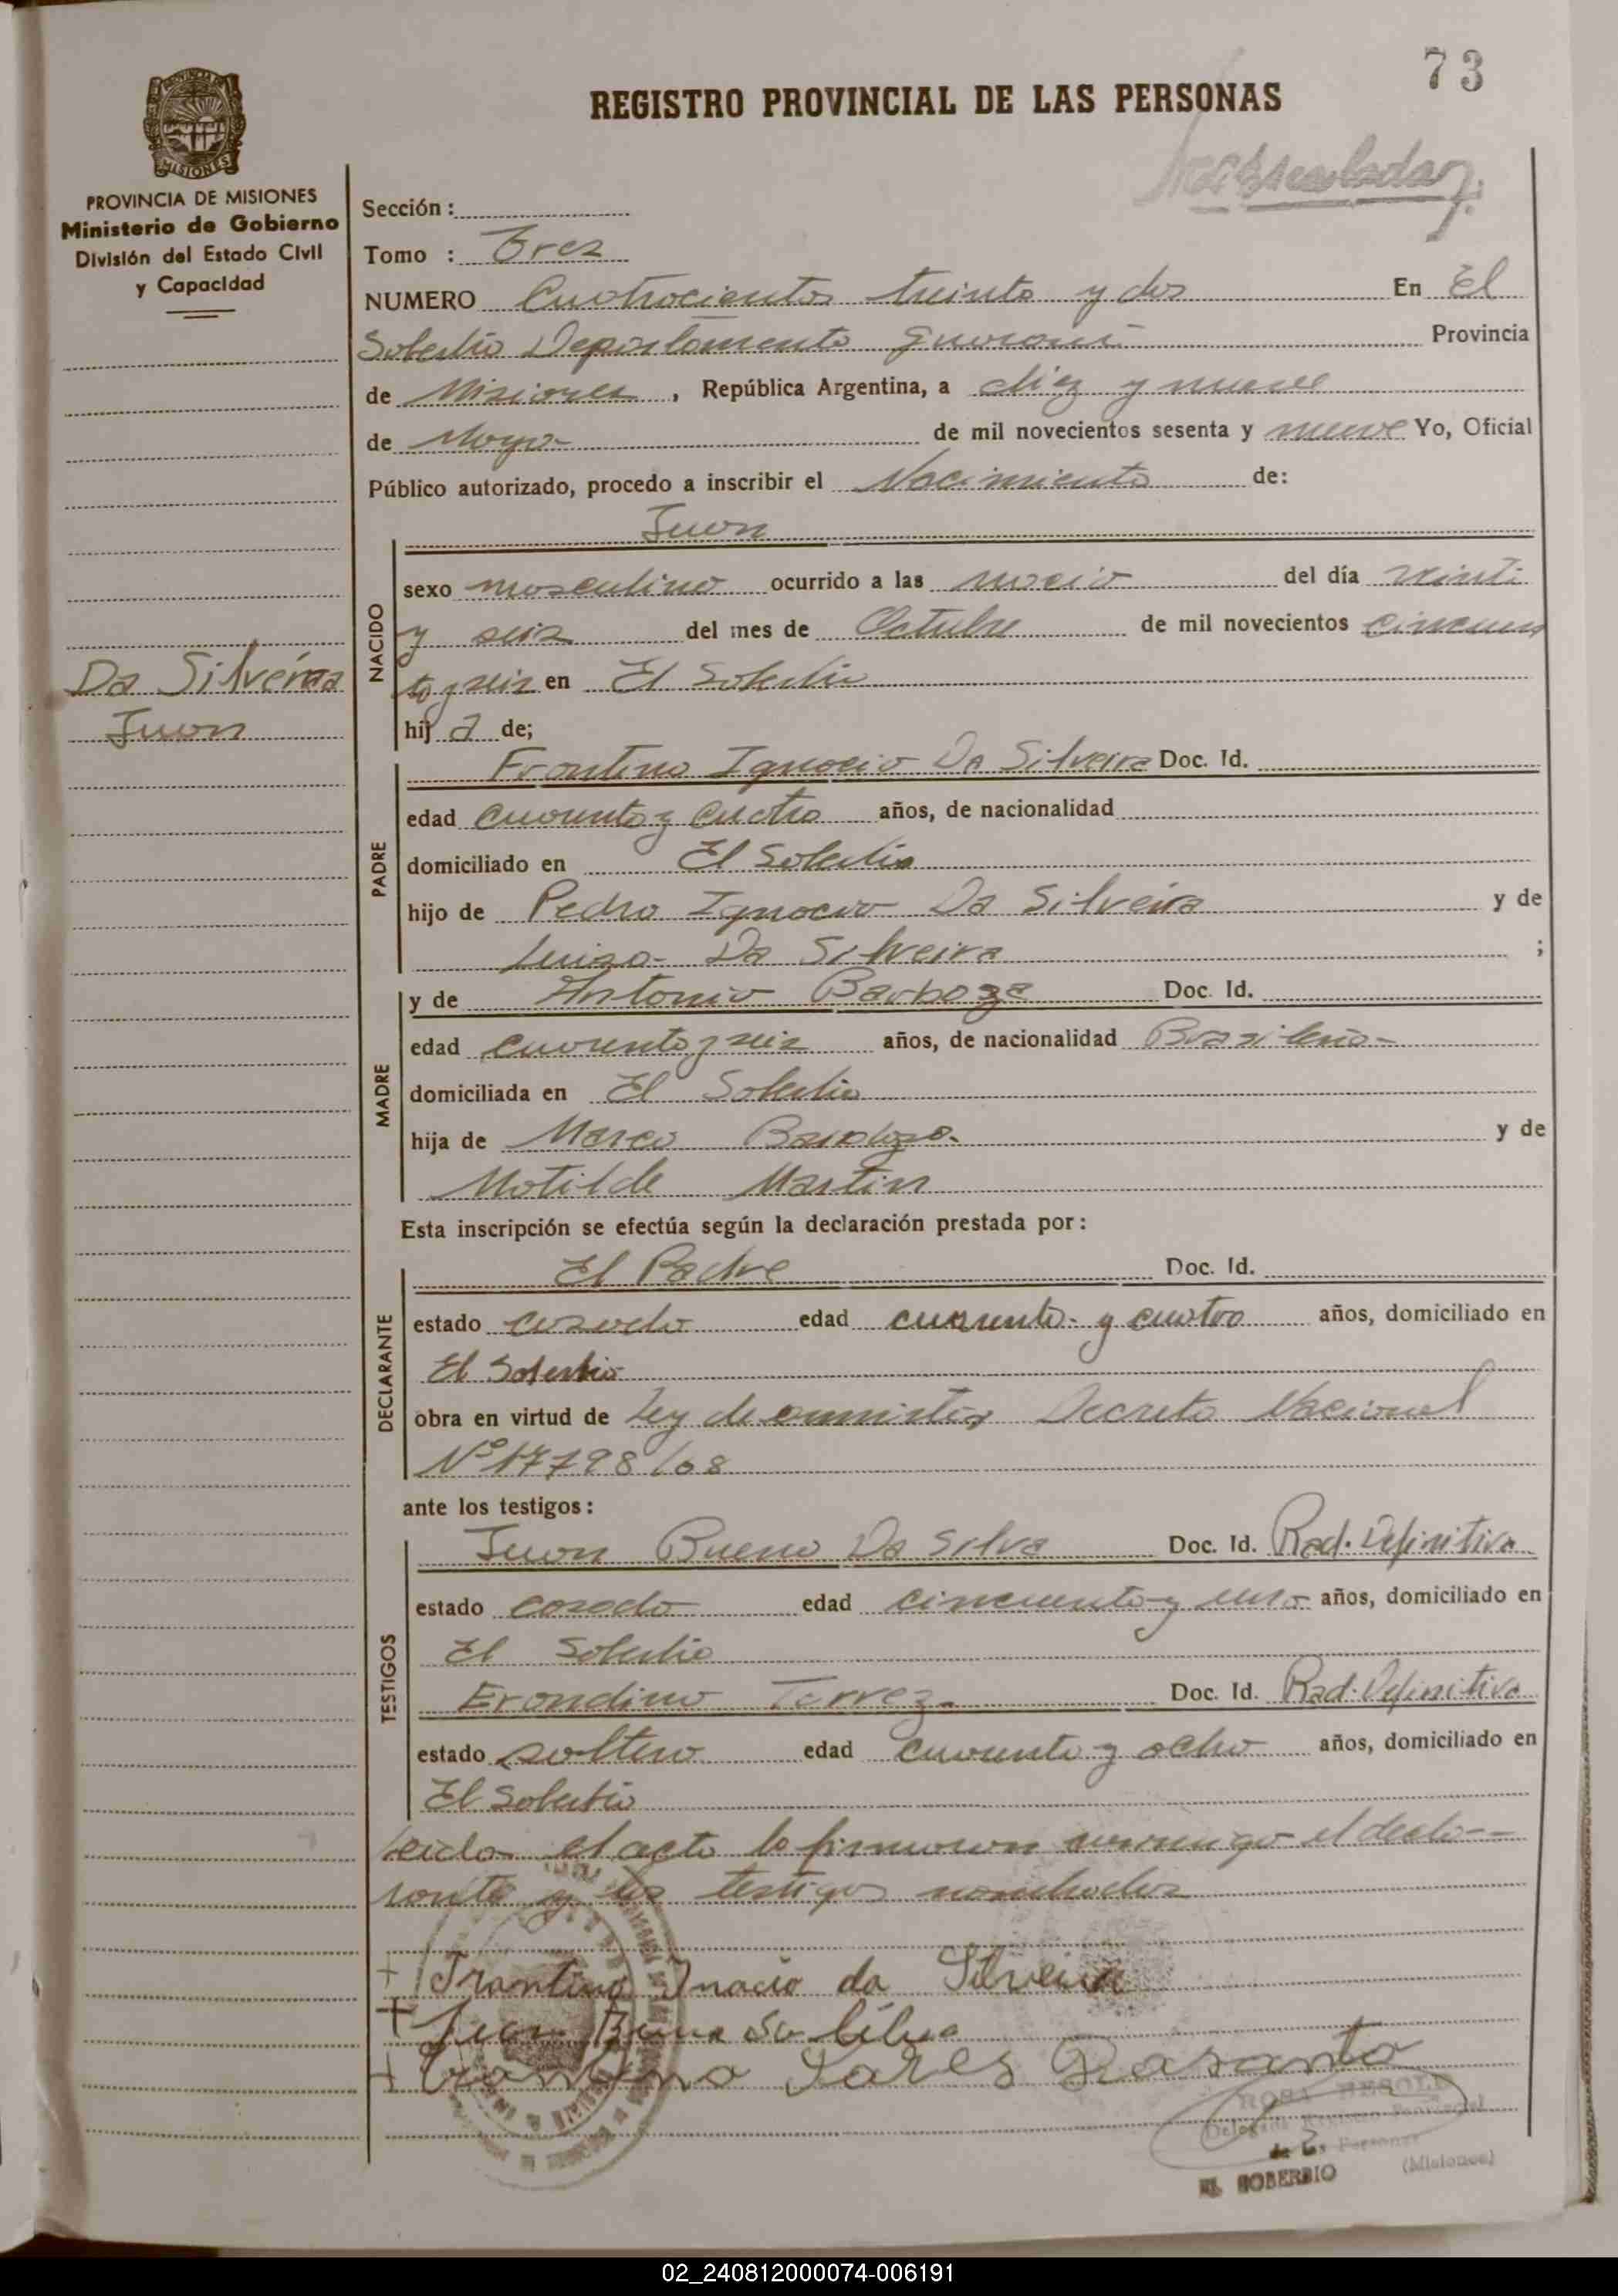 73
REGISTRO PROVINCIAL DE LAS PERSONAS
MISIONES
PROVINCIA DE MISIONES
Ministerio de Gobierno
División del Estado Civil
y Capacidad
Da Silveira
Juan
Sección :
Tomo : Tres
NUMERO Cuatrocientos treinta y dos En El
Soberbio Departamento Guarani Provincia
de Misiones , República Argentina, a diez y nueve
de Mayo de mil novecientos sesenta y nueve Yo, Oficial
Público autorizado, procedo a inscribir el Nacimiento de:
Juan
NACIDO
sexo masculino ocurrido a las del día veinti
y seis del mes de Octubre de mil novecientos cincuen
ta y seis en El Soberbio
hij a de;
PADRE
Frontino Ignacio Da Silveira Doc. Id.
edad cuarenta y cuatro años, de nacionalidad
domiciliado en El Soberbio
hijo de Pedro Ignacio Da Silveira y de
Luisa Da Silveira ;
MADRE
y de Antonia Barboza Doc. Id.
edad cuarenta y seis años, de nacionalidad Brasileña
domiciliada en El Soberbio
hija de Marco Barboza y de
Matilde Martin
Esta inscripción se efectúa según la declaración prestada por:
DECLARANTE
El Padre Doc. Id.
estado casado edad cuarenta y cuatro años, domiciliado en
El Soberbio
obra en virtud de Ley de amnistia Decreto Nacional
Nº 17798/68
ante los testigos:
TESTIGOS
Juan Bueno Da Silva Doc. Id. Rad. Definitiva
estado casado edad cincuenta y uno años, domiciliado en
El Soberbio
Erondino Torrez Doc. Id. Rad. Definitiva
estado soltero edad cuarenta y ocho años, domiciliado en
El Soberbio
Leida el acta la firmaron conmigo el decla-
rante y los testigos nombrados
+ Frontino Inacio da Silveira
+
+
ROSA
Delegada Registro Provincial
de las Personas
EL SOBERBIO (Misiones)
02_240812000074-006191